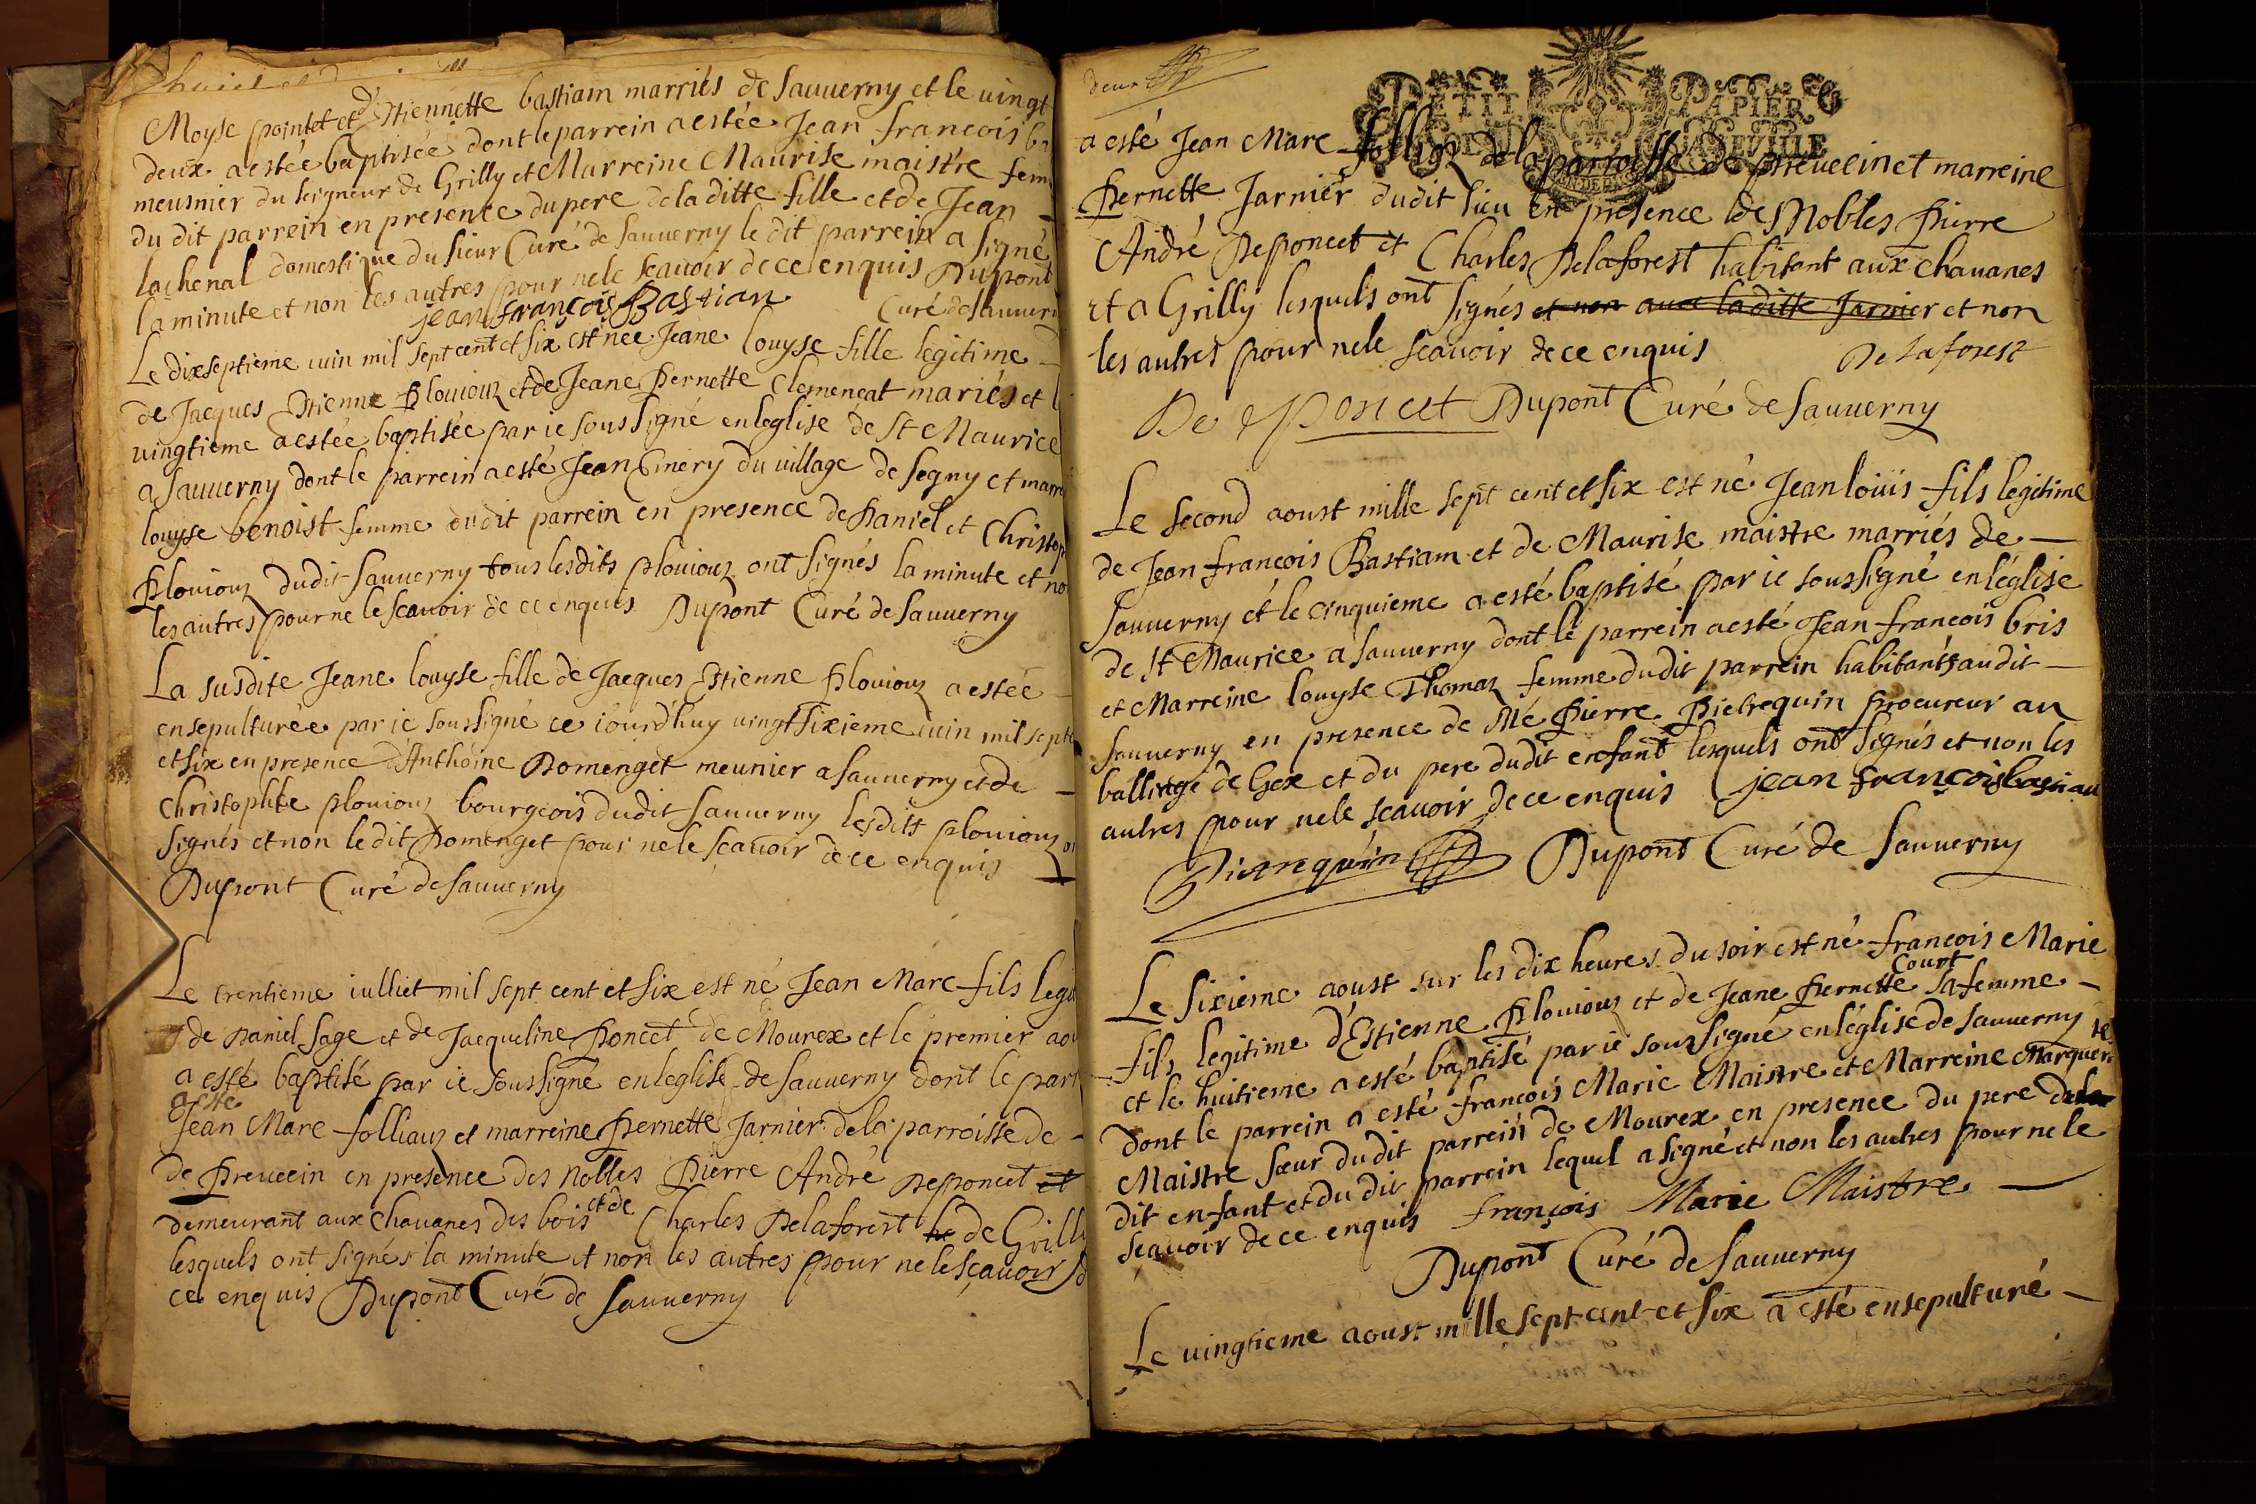 Moyse pointet et d'Etiennette bastiam marriés de Sauuerny et le uingt
deux a estée baptisée dont le parrein a estée Jean francois
meusnier du seigneur de Grilly et Marreine Maurise maistre fem
du dit parrein en presence du pere de la ditte fille et de Jean
lachenal domestique du sieur Curé de Sauuerny le dit parrein a signé
la minute et non les autres pour ne le sçauoir de ce enquis Dupont
jean françois Bastian Curé de Sauuern
Le dixseptieme iuin mil sept cent et six est née Jeane louyse fille legitime
de Jacques Etienne Plouiouz et de Jeane Pernette Clemençat mariés et l
uingtieme a estée baptisée par ie soussigné en leglise de St Maurice
a Sauuerny dont le parrein a esté Jean Emery du uillage de Segny et marre
louyse benoist femme dudit parrein en presence de Daniel et Christop
Plouiouz dudit Sauuerny tous lesdits plouiouz ont signés la minute et no
les autres pour ne le sçauoir de ce enquis Dupont Curé de Sauuerny
La susdite Jeane louyse fille de Jacques Etienne Plouiouz a estée
ensepulturée par ie soussigné ce iourd'huy uingt sixieme iuin mil sept
et six en presence d'Anthoine Domenget meunier a Sauuerny et de
Christophle plouiouz bourgeois dudit Sauuerny lesdits plouiouz o
signés et non le dit Domenget pour ne le sçauoir de ce enquis
Dupont Curé de Sauuerny
Le trentieme iulliet mil sept cent et six est né Jean Marc fils legi
de Daniel Sage et de Jacqueline Poncet de Mourex et le premier aou
a esté baptisé par ie soussigné en leglise de Sauuerny dont le parr
a esté
Jean Marc folliauz et marreine Pernette Jarnier de la parroisse de
de Preuecin en presence des Nobles Pierre André Deponcet et
demeurant aux Chauanes des bois et de Charles Delaforest de Grilly
lesquels ont signés la minute et non les autres pour ne le sçauoir d
ce enquis Dupont Curé de Sauuerny
deux
PETIT PAPIER
a esté Jean Marc folliaz de la parroisse de preuecin et marreine
Pernette Jarnier dudit lieu en presence des Nobles Pierre
André Deponcet et Charles Delaforest habitant aux Chauanes
et a Grilly lesquels ont signés et non auec la ditte Jarnier et non
les autres pour ne le sçauoir de ce enquis De Laforest
De Poncet Dupont Curé de Sauuerny
Le second aoust mille sept cent et six est né Jean loüis fils legitime
de Jean francois Bastiam et de Maurise maistre marriés de
Sauuerny et le cinquieme a esté baptisé par ie soussigné en léglise
de St Maurice a Sauuerny dont le parrein a esté Jean francois bris
et Marreine louyse Thomaz femme dudit parrein habitants audit
Sauuerny en presence de Me Pierre Pietrequin procureur au
balliage de Gex et du pere dudit enfant lesquels ont signés et non les
autres pour ne le sçauoir de ce enquis jean françois bastian
Dupont Curé de Sauuerny
Le sixieme aoust sur les dix heures du soir est né francois Marie
fils legitime d'Estienne Plouiouz et de Jeane Pernette Court sa femme
et le huitieme a esté baptisé par ie soussigné en léglise de Sauuerny
dont le parrein a esté francois Marie Maistre et Marreine Marguer
Maistre sœur dudit parrein de Mourex en presence du pere du
dit enfant et du dit parrein lequel a signé et non les autres pour ne le
sçauoir de ce enquis françois Marie Maistre
Dupont Curé de Sauuerny
Le uingtieme aoust mille sept cent et six a esté ensepulturé